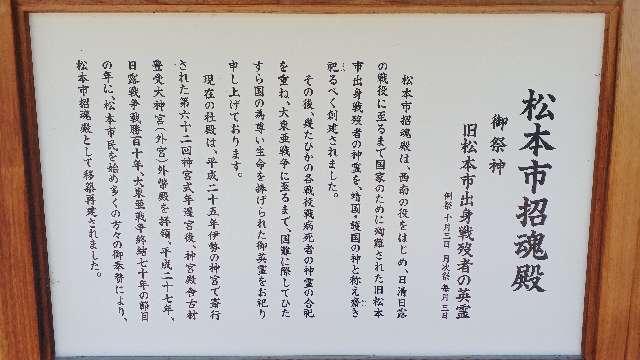 松本市招魂殿
御祭神
旧松本市出身戦歿者の英霊
例祭 十月三日 月次祭 毎月三日
松本市招魂殿は、西南の役をはじめ、日清日露
の戦役に至るまで国家のために殉難された旧松本
市出身戦歿者の神霊を、靖国・護国の神と称え斎き
祀るべく創建されました。
その後、幾たびかの各戦役戦病死者の神霊の合祀
を重ね、大東亜戦争に至るまで、国難に際してひた
すら国の為尊い生命を捧げられた御英霊をお祀り
申し上げております。
現在の社殿は、平成二十五年伊勢の神宮で斎行
された第六十二回神宮式年遷宮後、神宮殿舎古材
豊受大神宮(外宮)外幣殿を拝領、平成二十七年、
日露戦争戦勝百十年、大東亜戦争終結七十年の節目
の年に、松本市民を始め多くの方々の御奉賛により、
松本市招魂殿として移築再建されました。